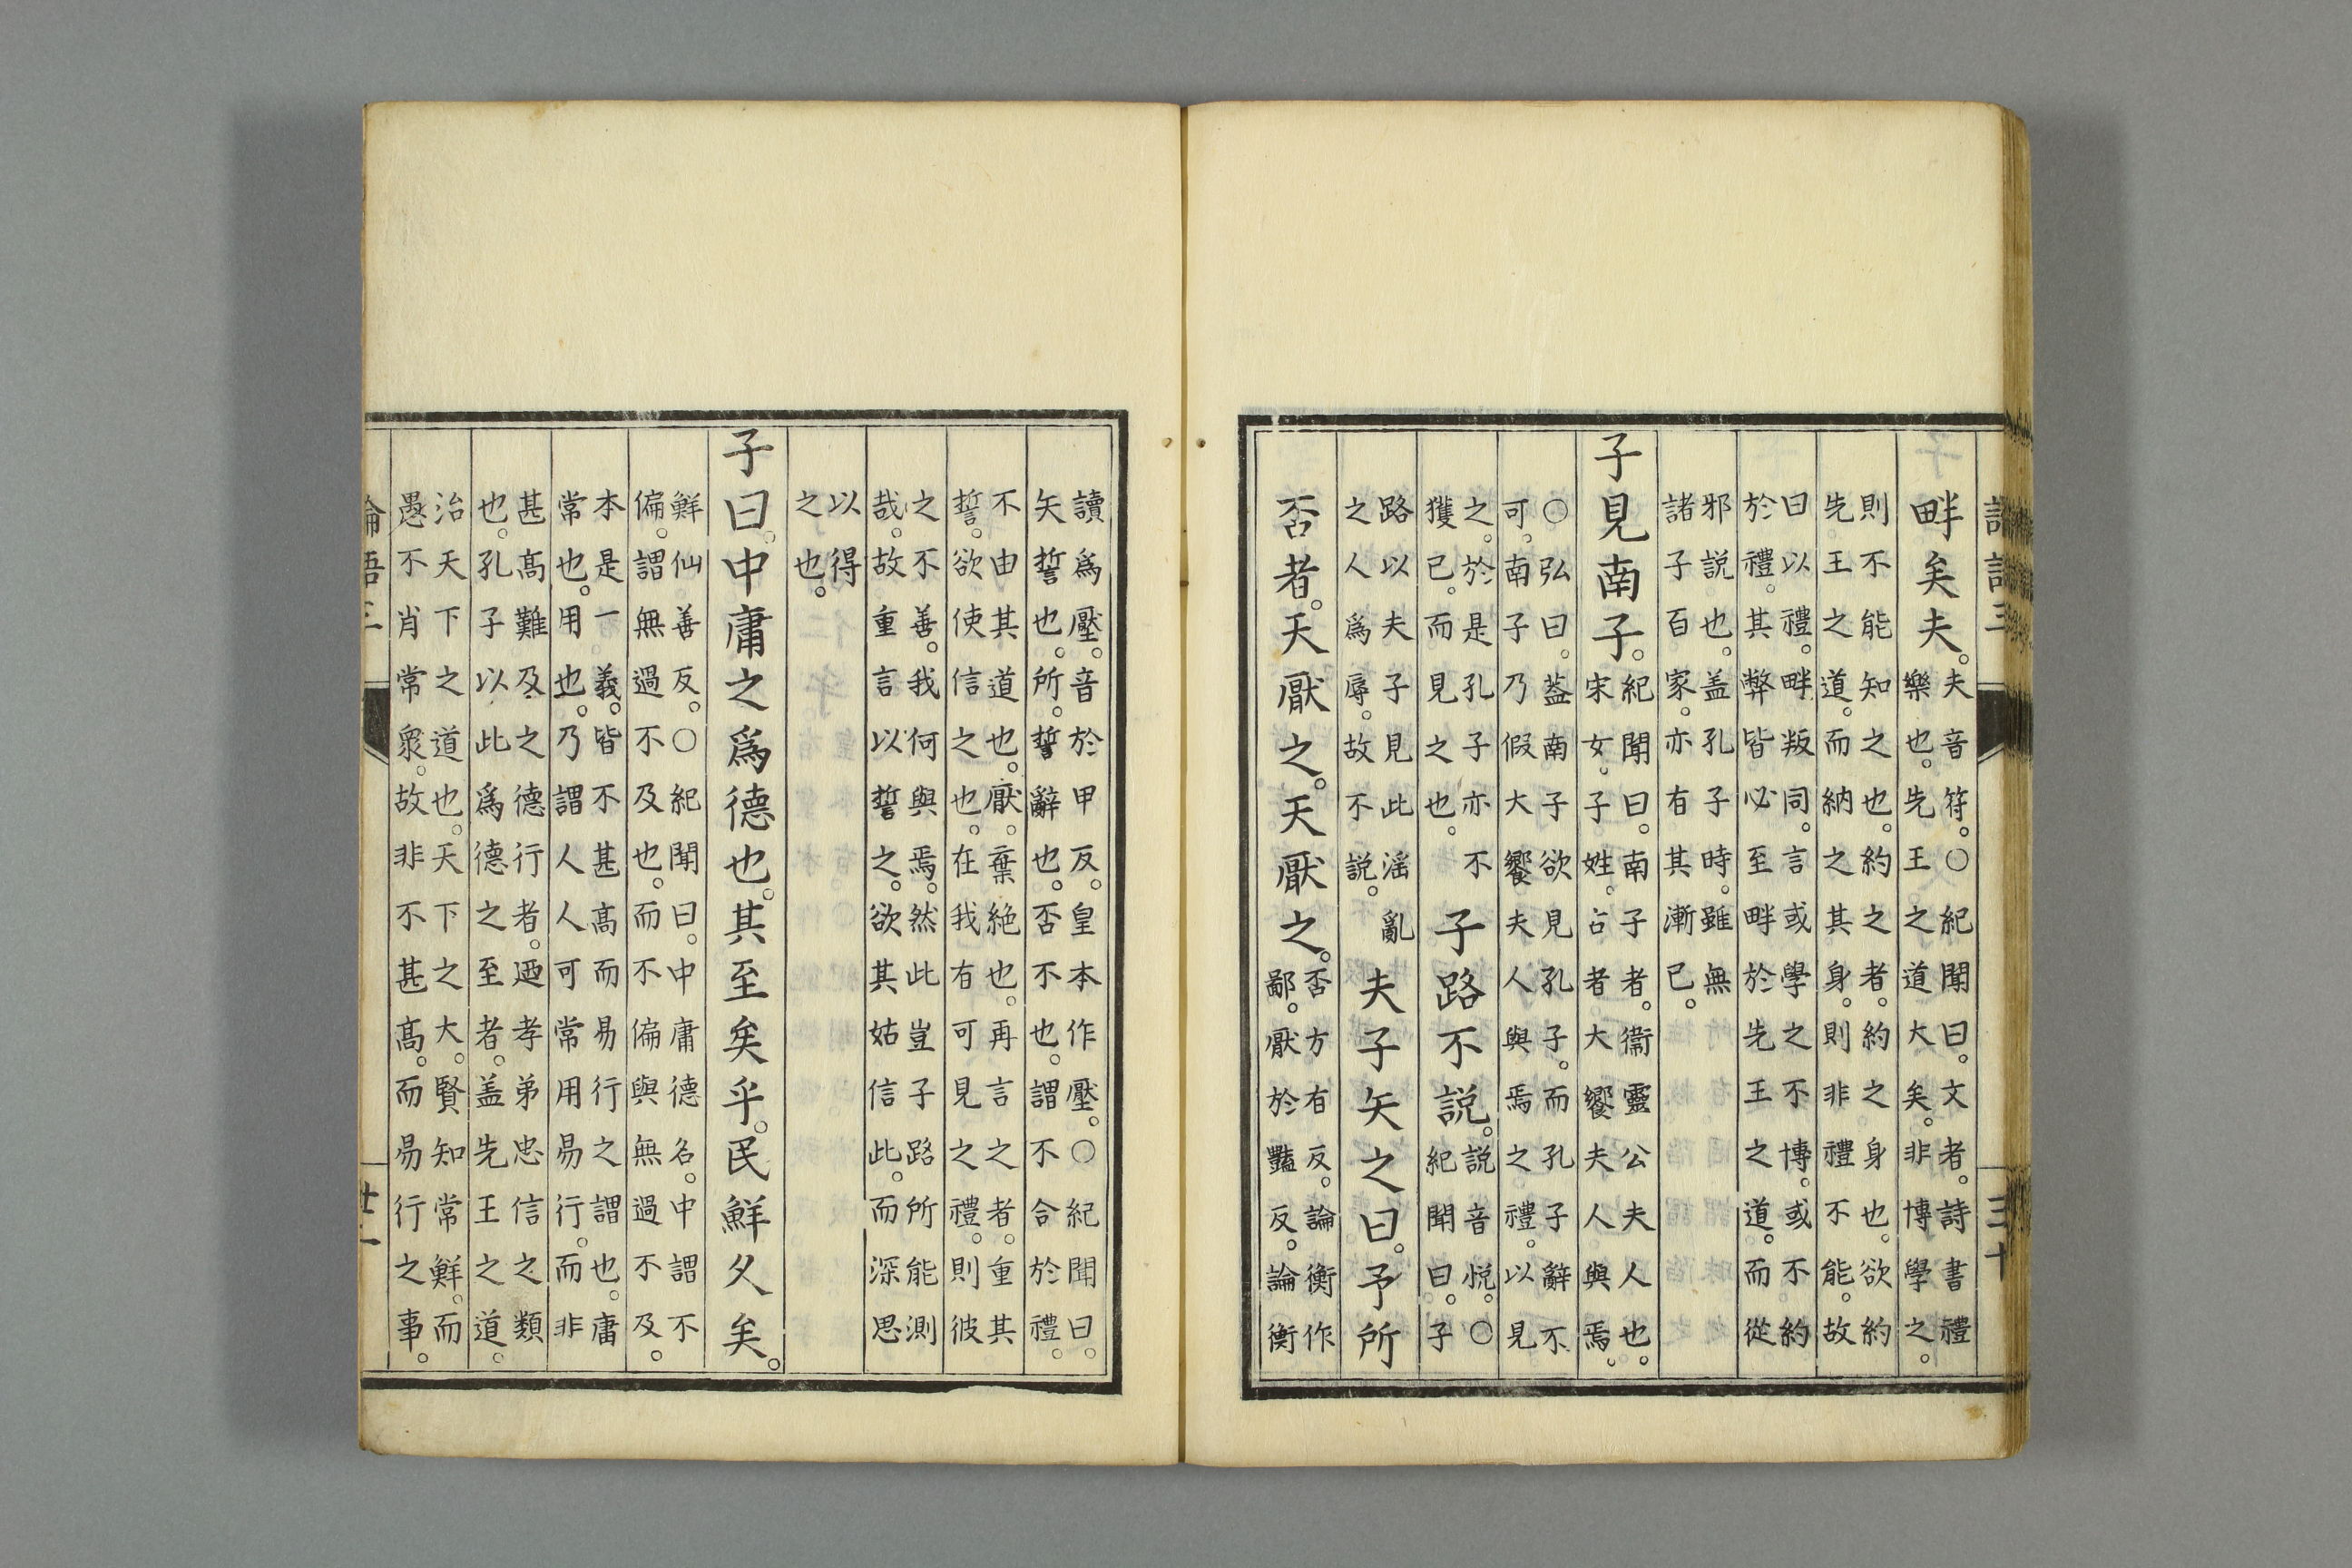 論語三
三十
畔矣夫。
夫音符。○紀聞曰。文者。詩書禮
樂也。先王之道大矣。非博學之。
則不能知之也。約之者。約之身也。欲約
先王之道。而納之其身。則非禮不能。故
曰以禮。畔叛同。言或學之不博。或不約
於禮。其弊皆必至畔於先王之道。而從
邪説也。盖孔子時。雖無
諸子百家。亦有其漸已。
子見南子。
紀聞曰。南子者。衞靈公夫人也。
宋女。子姓。古者大饗夫人與焉。
○弘曰。葢南子欲見孔子。而孔子辭不
可。南子乃假大饗夫人與焉之禮。以見
之。於是孔子亦不
獲已。而見之也。
子路不説。
説音悦。○
紀聞曰。子
路以夫子見此淫亂
之人爲辱。故不説。
夫子矢之曰。予所
否者。天厭之。天厭之。
否方有反。論衡作
鄙。厭於豔反。論衡
讀爲壓。音於甲反。皇本作壓。○紀聞曰。
矢誓也。所。誓辭也。否不也。謂不合於禮。
不由其道也。厭。棄絶也。再言之者。重其
誓。欲使信之也。在我有可見之禮。則彼
之不善。我何與焉。然此豈子路所能測
哉。故重言以誓之。欲其姑信此。而深思
以得
之也。
子曰。中庸之爲德也。其至矣乎。民鮮久矣。
鮮仙善反。○紀聞曰。中庸德名。中謂不
偏。謂無過不及也。而不偏與無過不及。
本是一義。皆不甚髙而易行之謂也。庸
常也。用也。乃謂人人可常用易行。而非
甚髙難及之德行者。迺孝弟忠信之類
也。孔子以此爲德之至者。盖先王之道。
治天下之道也。天下之大。賢知常鮮。而
愚不肖常衆。故非不甚髙。而易行之事。
論語三